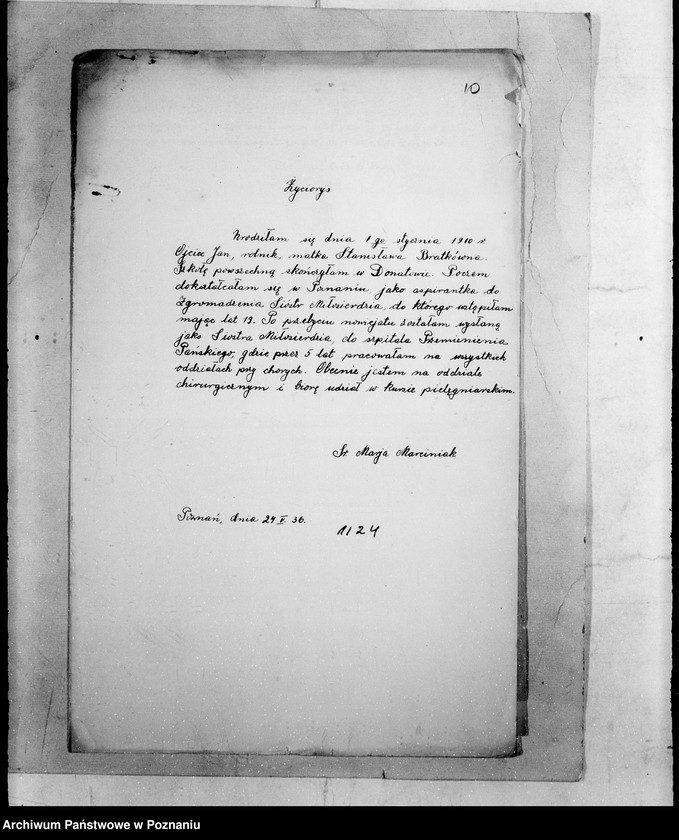 10
Życiorys.
Urodziłam się dnia 1 go stycznia 1910 r.
Ojciec Jan, rolnik, matka Stanisława Bratkówna
Szkołę powszechną skończyłam w Donatowie. Poczem
dokształcałam się w Poznaniu jako aspirantka do
Zgromadzenia Sióstr Miłosierdzia, do którego wstąpiłam
mając lat 19. Po przebyciu nowicjatu zostałam wysłaną
jako Siostra Miłosierdzia, do szpitala Przemienienia
Pańskiego, gdzie przez 5 lat pracowałam na wszystkich
oddziałach przy chorych. Obecnie jestem na oddziale
chirurgicznym i biorę udział w kursie pielęgniarskim.
Sr. Marja Marciniak
Poznań, dnia 24 V. 36.
1124
Archiwum Państwowe w Poznaniu